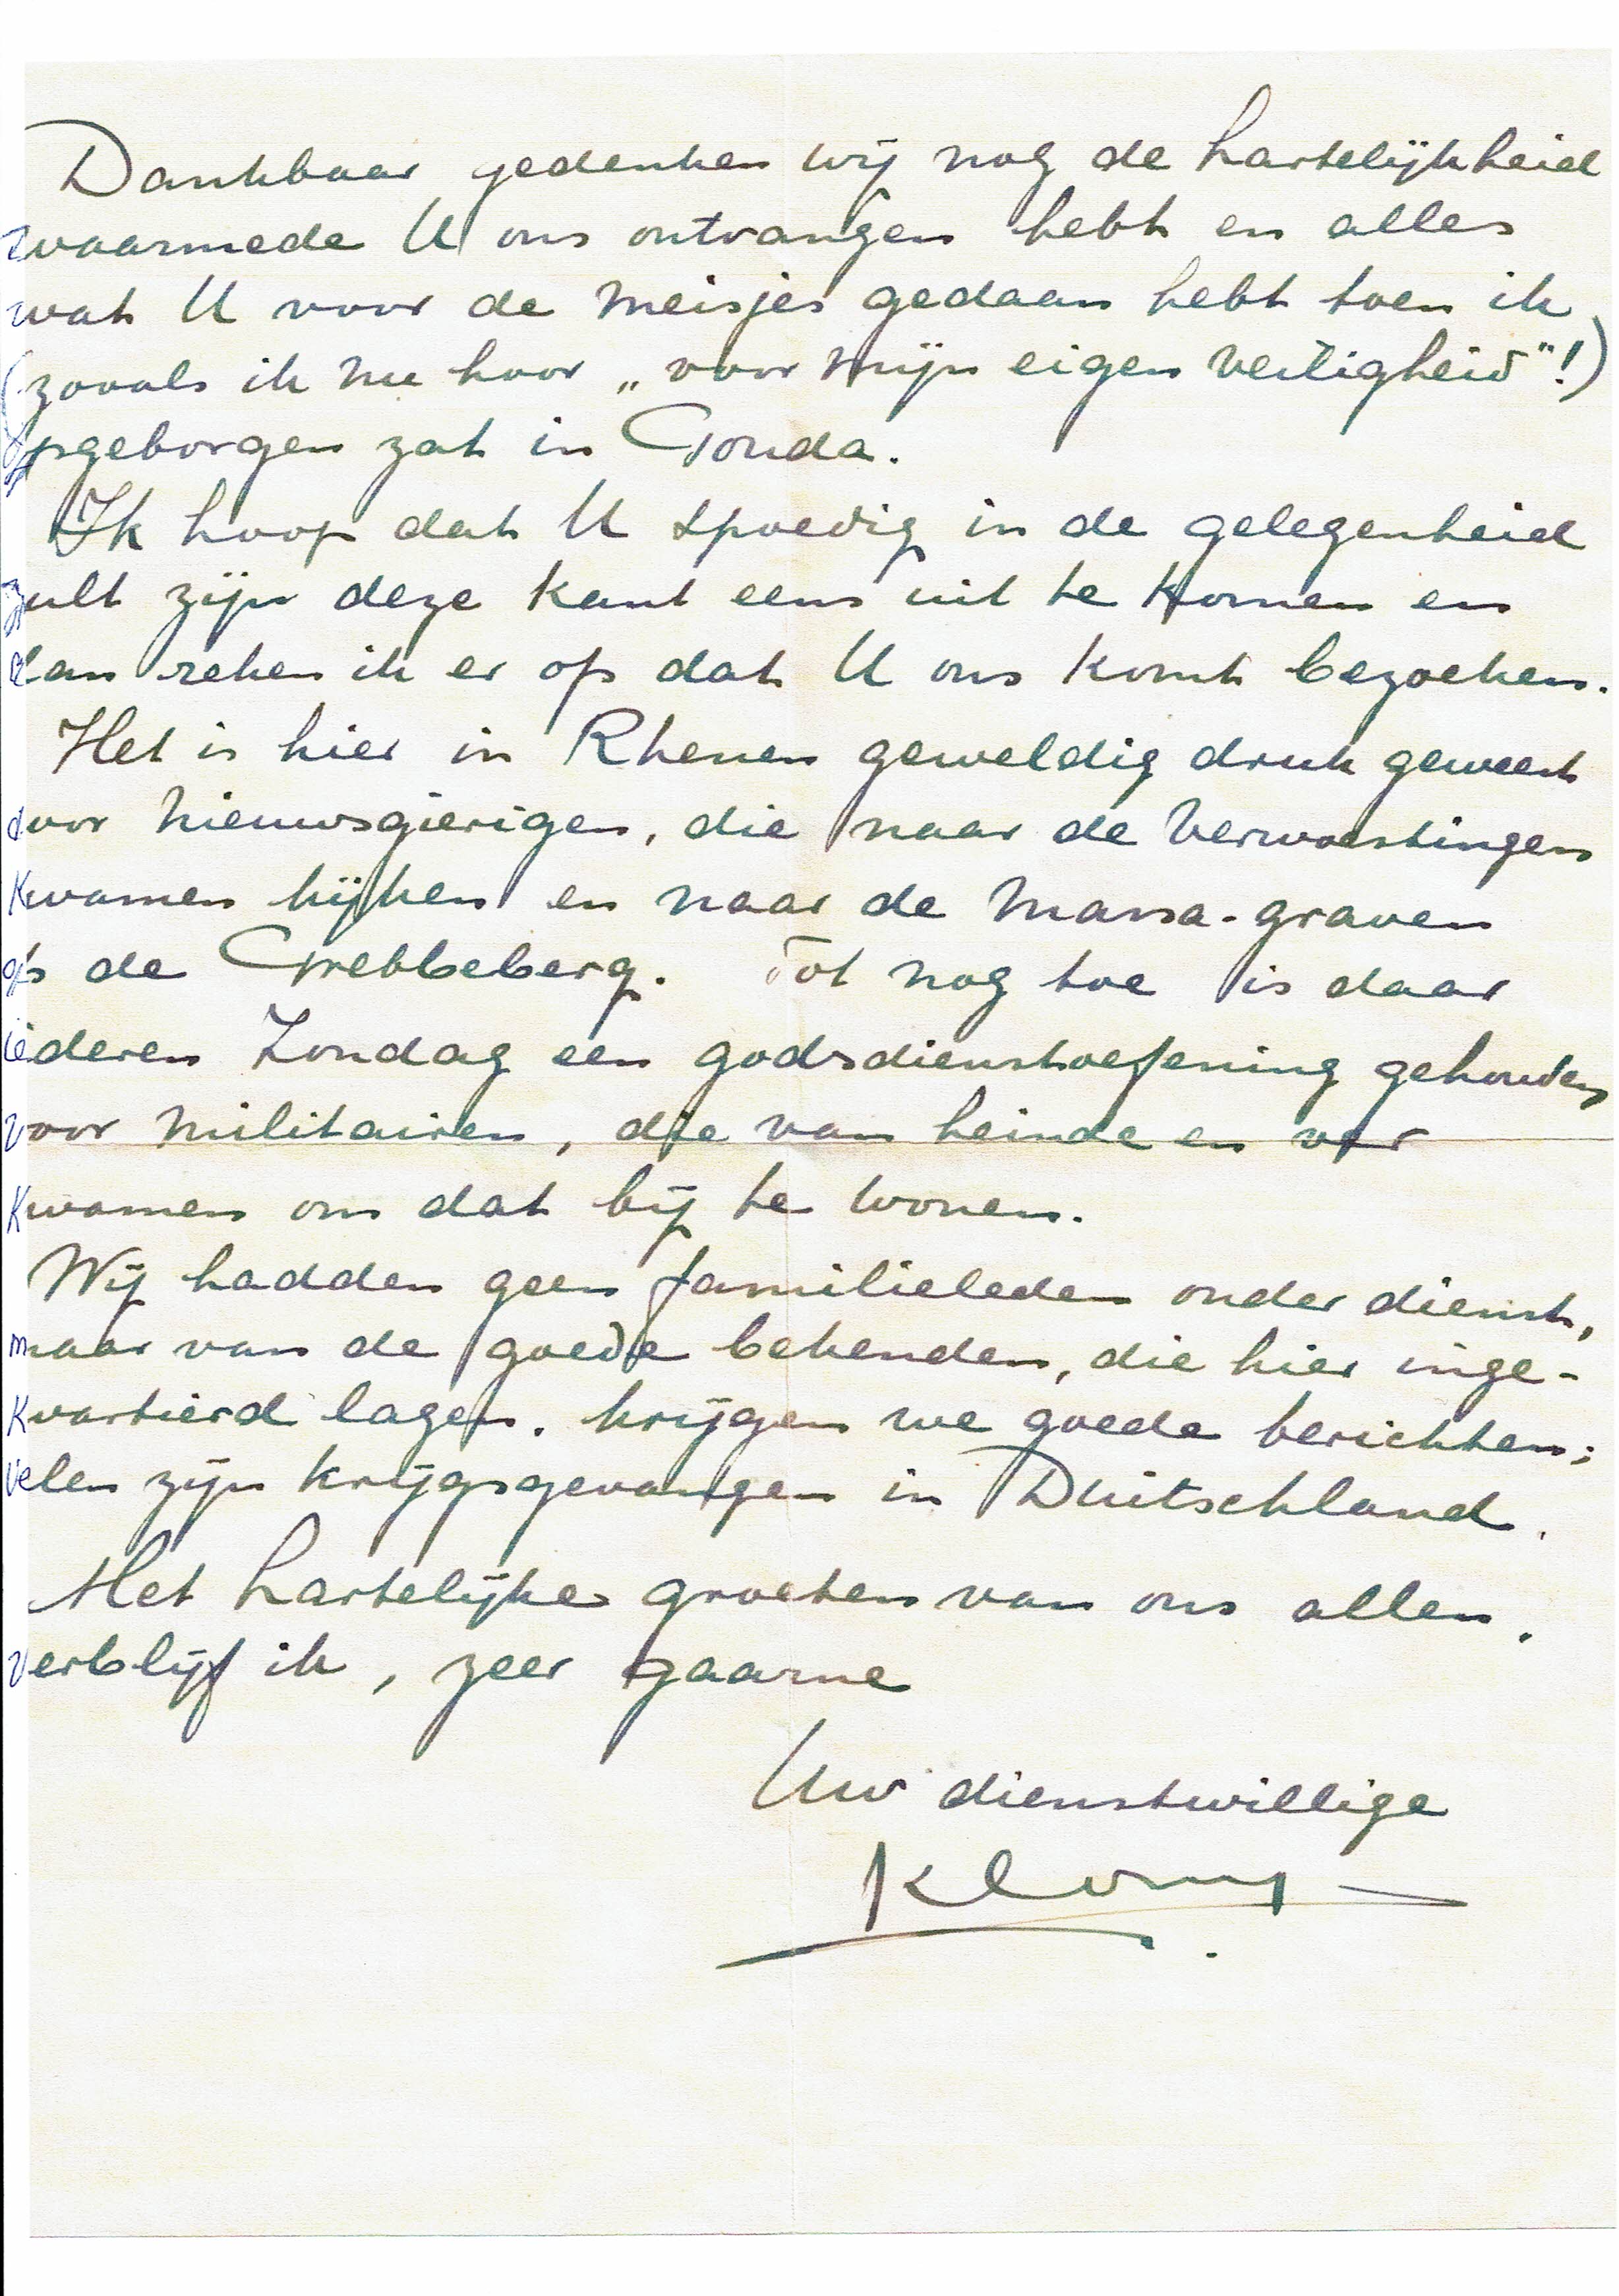 Dankbaar gedenken wij nog de hartelijkheid
waarmede U ons ontvangen hebt en alles
wat U voor de meisjes gedaan hebt toen ik
(zooals ik nu hoor „voor mijn eigen veiligheid"!)
opgeborgen zat in Gouda.
Ik hoop dat U spoedig in de gelegenheid
zult zijn deze kant eens uit te komen en
dan reken ik er op dat U ons komt bezoeken.
Het is hier in Rhenen geweldig druk geweest
door nieuwsgierigen, die naar de verwoestingen
kwamen kijken en naar de massa-graven
op de Grebbeberg. Tot nog toe is daar
iederen Zondag een godsdienstoefening gehouden
voor militairen, die van heinde en ver
kwamen om dat bij te wonen.
Wij hadden geen familieleden onder dienst,
maar van de goede bekenden, die hier inge-
kwartierd lagen, krijgen we goede berichten;
velen zijn krijgsgevangen in Duitschland.
Met hartelijke groeten van ons allen,
verblijf ik, zeer gaarne
Uw dienstwillige
Klomp